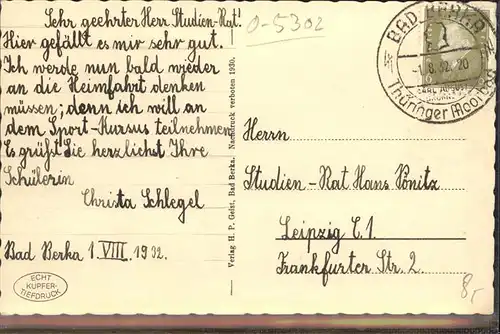 Sehr geehrter Herr Studien-Rat!
Hier gefällt es mir sehr gut.
Ich werde nun bald wieder
an die Heimfahrt denken
müssen; denn ich will an
dem Sport-Kursus teilnehmen.
Es grüßt Sie herzlichst Ihre
Schülerin
Christa Schlegel
Bad Berka 1. VIII. 1932.
ECHT
KUPFER-
TIEFDRUCK
Verlag H. P. Geist, Bad Berka. Nachdruck verboten 1930.
0-5302
BAD BERKA
-1.8.32.20
Thüringer Moorbad
Herrn
Studien-Rat Hans Bönitz
Leipzig C.1.
Frankfurter Str. 2.
8,-